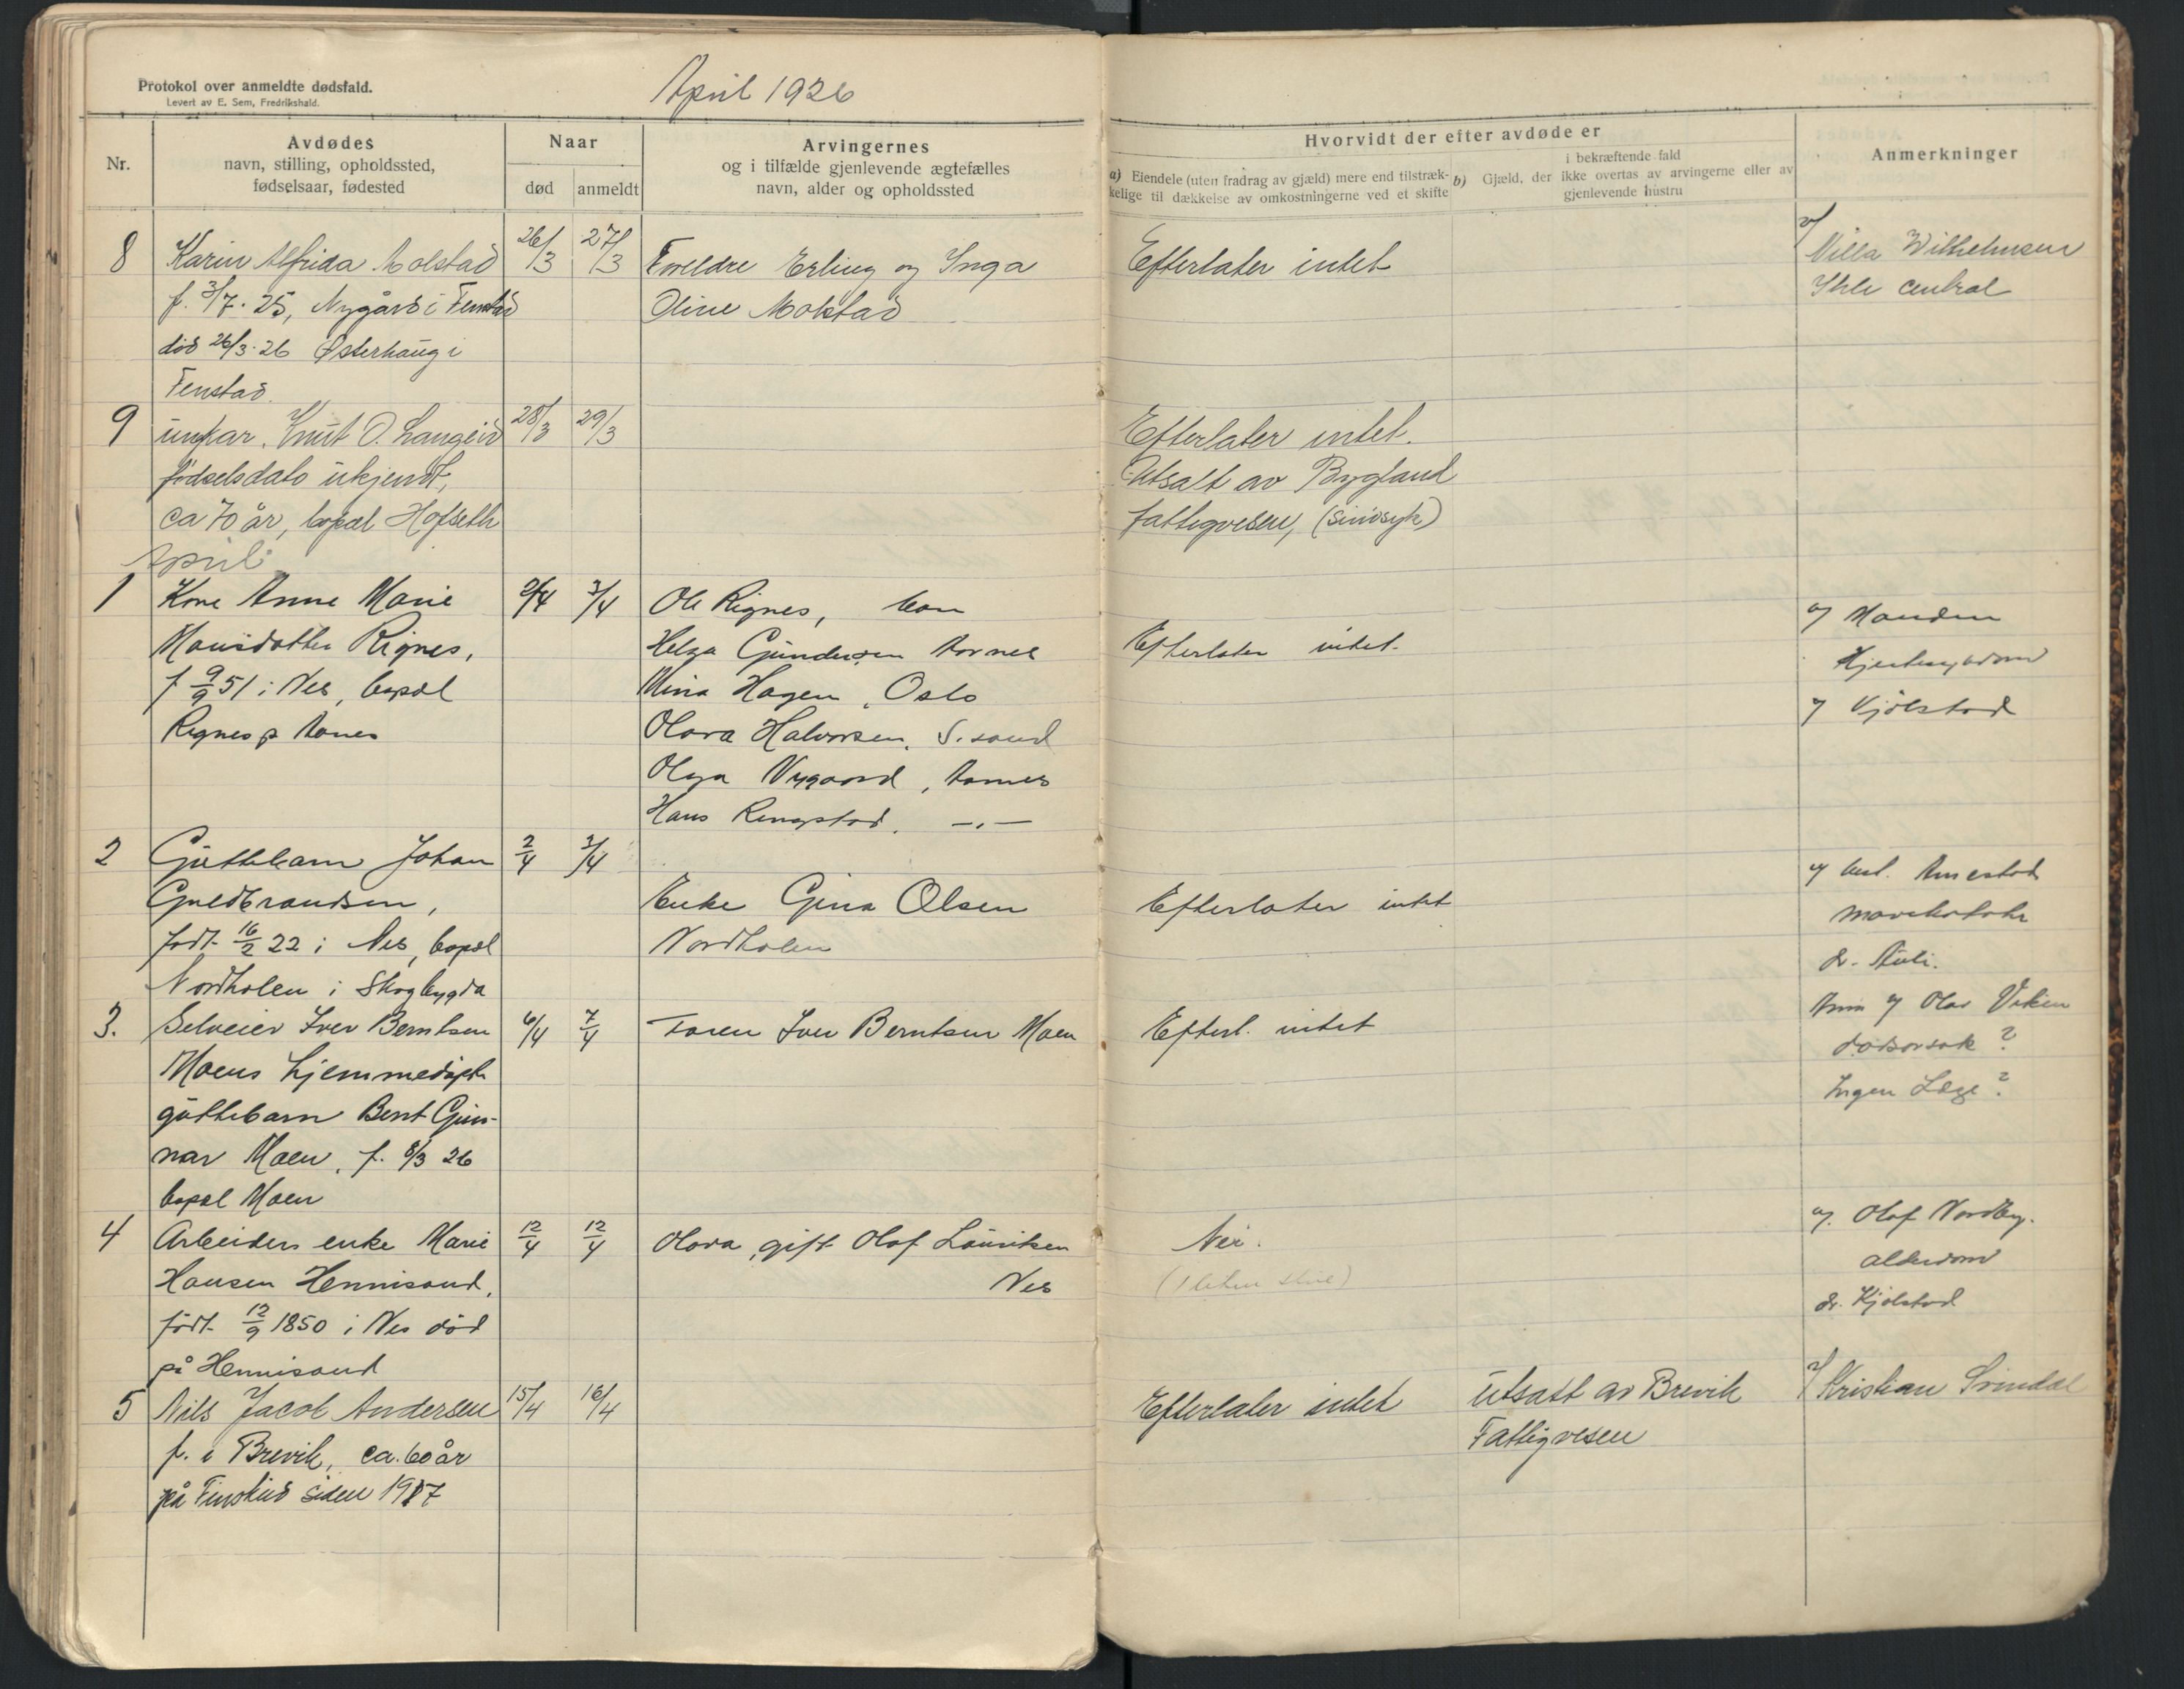 Protokol over anmeldte dødsfald.
Levert av E. Sem, Fredrikshald.
April 1926
Nr.
Avdødes
navn, stilling, opholdssted,
fødselsaar, fødested
Naar
død
anmeldt
Arvingernes
og i tilfælde gjenlevende ægtefælles
navn, alder og opholdssted
Hvorvidt der efter avdøde er
a) Eiendele (uten fradrag av gjæld) mere end tilstræk-
kelige til dækkelse av omkostningerne ved et skifte
i bekræftende fald
b) Gjæld, der ikke overtas av arvingerne eller av
gjenlevende hustru
Anmerkninger
8 Karin Alfrida Molstad 26/3 27/3 Foreldre Erling og Inga Efterlater intet v/ Villa Wilhelmsen
f. 3/7. 25, Nygård i Fenstad Oline Molstad central
død 26/3. 26 Østerhaug i
Fenstad.
9 ungkar. Knut O. Langeid 28/3 29/3 Efterlater intet.
fødselsdato ukjendt, Utsatt av Bygland
ca 70 år, bopæl Hofseth fattigvesen, (sindsyk)
April
1 Kone Anne Marie 2/4 3/4 Ole Rignes, v/ Manden
Hansdatter Rignes, Helga Gundersen Aarnes Efterlater intet.
f 9/9 51 i Nes, bopæl Mina Hagen, Oslo
Rignes p Aarnes Olava Halvorsen, S. sand v/ Kjölstad
Olga Nygaard, Aarnes
Hans Ringstad. —"—
2 Guttebarn Johan 2/4 3/4
Guldbrandsen, Enke Gina Olsen Efterlater intet
født 16/2 22 i Nes, bopæl Nordholen
Nordholen i Skogbygda
3. Selveier Iver Berntsen 6/4 7/4 Faren Iver Berntsen Moen Efterl. intet Anm v/ Olav Viken
Moens hjemmedøpte dødsorsak?
guttebarn Bernt Gun- Ingen Læge?
nar Moen, f. 8/3 26
bopæl Moen
4 Arbeiders enke Marie 12/4 12/4 Olava, gift Olaf Lauritsen Nei. v/. Olaf Nordby.
Hansen Hennisand, Nes alderdom
født 12/9 1850 i Nes død dr. Kjölstad
på Hennisand
5 Nils Jacob Andersen 15/4 16/4 Efterlater intet Utsatt av Brevik v/ Kristian Svindal
f. i Brevik, ca. 60 år Fattigvesen
på Finstad siden 1917